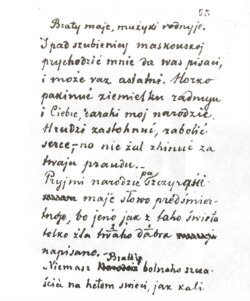 55
Braty maje, mużyki rodnyje.
Z pad szubienicy maskouskoj
prychodzić mnie da was pisaci,
i może raz astatni. Horko
pakinuć ziemielku radnuju
i Ciebie, darahi moj narodzie.
Hrudzi zastohnuć, zabolić
serce, — no nie żal zhinuć za
twaju praudu. —
Pryjmi narodzie pa szczyrości
maje słowo predśmier-
tnoje, bo jeno jak z taho świeta
tolko dla twaho dabra
napisano.
Niemasz Bratki bolszaho szcza-
ścia na hetom świeci, jak kali